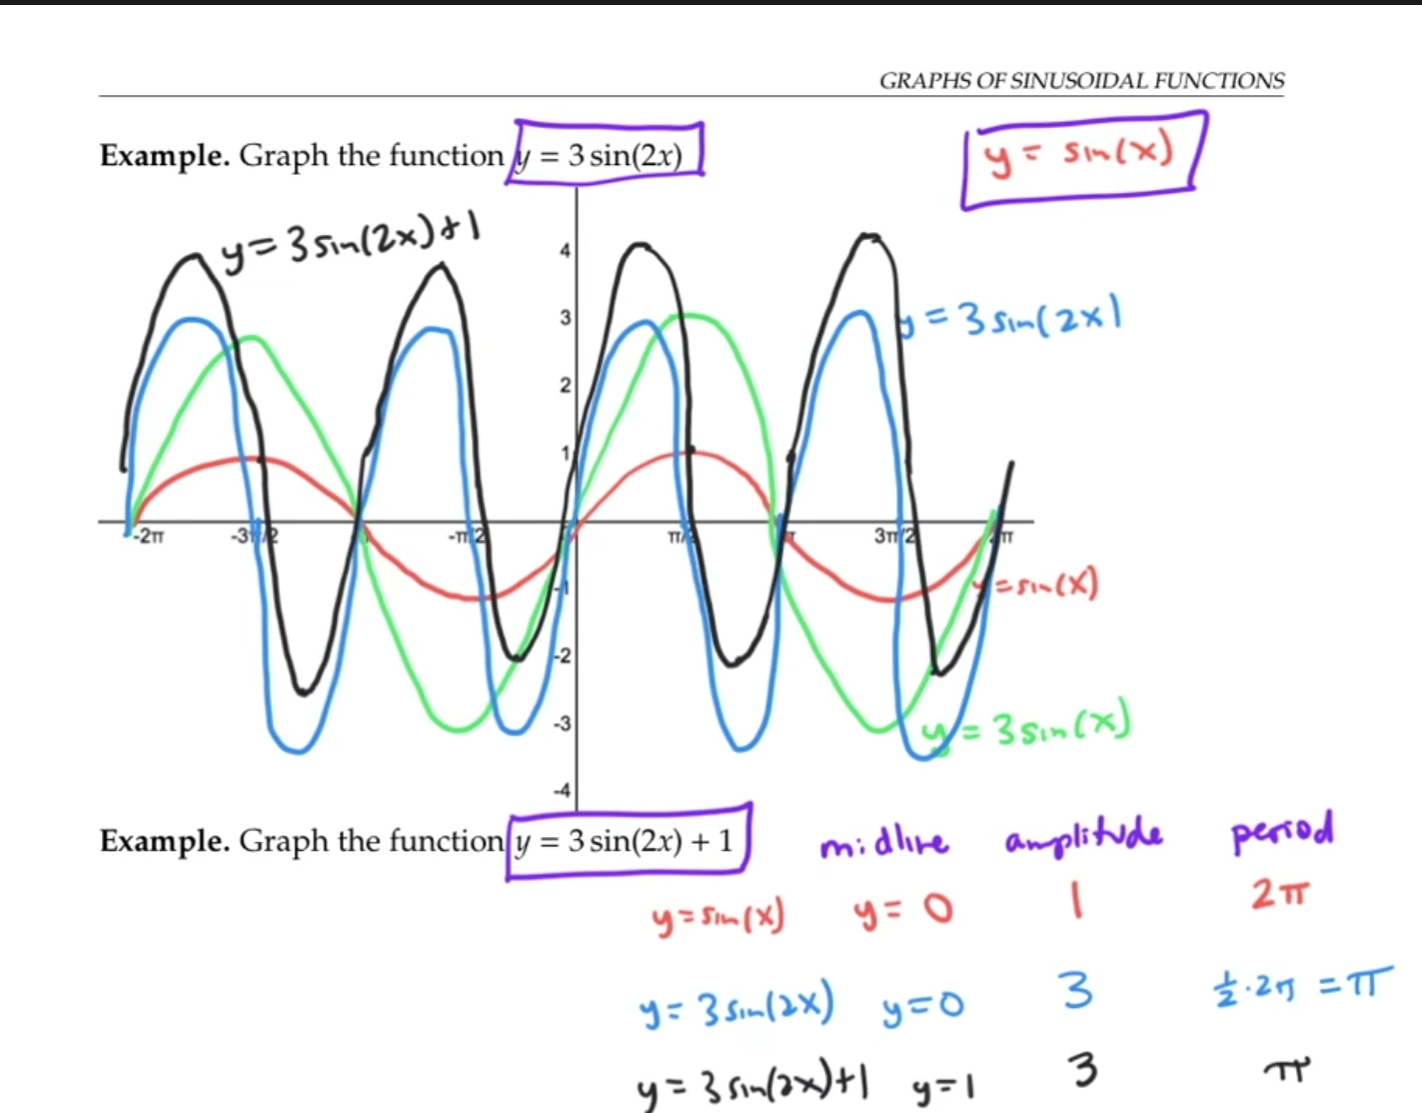 GRAPHS OF SINUSOIDAL FUNCTIONS
Example. Graph the function y = 3 sin(2x)
y = sin(x)
y = 3 sin(2x) + 1
4
3
y = 3 sin(2x)
2
1
-2π -3π/2 -π/2 π/2 π 3π/2 2π
-1
y = sin(x)
-2
-3
y = 3 sin(x)
-4
Example. Graph the function y = 3 sin(2x) + 1
midline amplitude period
y = sin(x) y = 0 1 2π
y = 3 sin(2x) y = 0 3 ½ · 2π = π
y = 3 sin(2x) + 1 y = 1 3 π